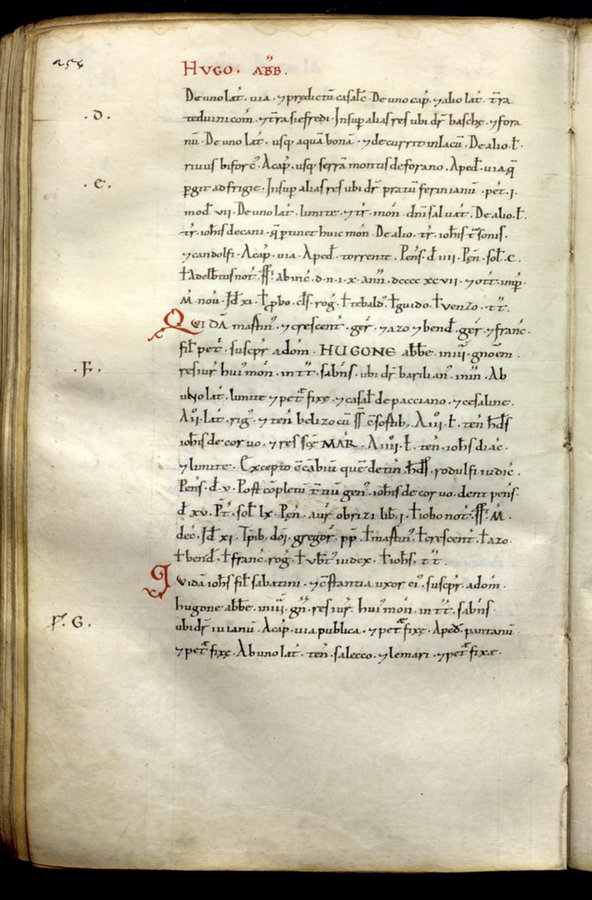 256
HUGO . ABB .
De uno lat . via . ⁊ predictũ casalē . De uno cap̃ . ⁊ alio lat . tr̃a
.D. teduini com̃ . ⁊ tr̃a siefredi . Insup̃ alias res ubi dr̃ basche ⁊ fora
nũ . De uno lat . usq; aquã bonã . ⁊ decurrit in lacũ . De alio ł .
rivus biforc̃ . A cap̃ . usq; serrã montis de forano . A ped̃ . via q̃
.E. p̃git ad frigię . Insup̃ alias res ubi dr̃ pratũ feri nianũ . pet̃ . I .
mod̃ VII . De uno lat . limite . ⁊ tr̃ . mon̄ . dñi salvat̃ . De alio . ł .
tr̃ . iohis decani . q̃ p̃tinet huic mon̄ . De alio . tr̃ . iohis
⁊ candolfi . A cap̃ . via . A ped̃ . torrente . Pens̃ . d̃ IIII . Pen̄ . sol̃ . C .
ab inc̃ . d . n . i . x . ann̄ . DCCCC XC VII . ⁊ ott̃ imp̃ .
M̃ . nov̄ . Id̃ XI . ł p̃bo . cl̃s . rog̃ . ł tebald̃ . ł guido . ł venzo . t t̃ .
QUIDÃ mastin̄ . ⁊ crescent̃ . ger̃ . ⁊ azo ⁊ bend̃ . ger̃ . ⁊ franc̃ .
fil̃ pet̃ . suscp̃r̃ a dom̃ . HUGONE abbe .
.F. resiur̃ hui mon̄ . in t t̃ . sabiñs . ubi dr̃ barilian̄ . Ab
uno lat . limite ⁊ pet̃ fixę . ⁊ casal̃ de pacciano . ⁊ cesaline .
lat . rig̃ . ⁊ ten̄ . belizo cũ ten̄ . hd̃s
iohis de corvo . ⁊ res scę MAR̃ . A IIII . ł . ten̄ . iohis diac̃ .
⁊ limite . Excepto que detin̄ . hd̃s . rodulfi iudic̃ .
Pens̃ . d̃ . V . Post cõpletũ gen̄ . iohis de corvo . dent pens̃ .
d̃ XV . P̃t̃ . sol̃ . LX . Pen̄ . aur̃ . obrizi lib̃ . I . ł iobo not̃ . M̃ .
dec̃ . Id̃ XI . Tp̃ib . doñ . gregor̃ . pp̃ . ł mastin̄ . ł crescent̃ . ł azo .
ł bend̃ . ł franc̃ . rog̃ . ł ub̃t iudex . ł iohs . t t̃ .
QUIDÃ iohs fil̃ sabatini . ⁊ cõstantia uxor ei . suscp̃r̃ a dom̃ .
hugone abbe . resiur̃ . hui mon̄ . in t t̃ . sabiñs .
.G. ubi dr̃ iuianũ . A cap̃ . via publica . ⁊ pet̃ fixę . A ped̃ . pantanũ
⁊ pet̃ fixę . Ab uno lat̃ . ten̄ . salecco . ⁊ lemari . ⁊ pet̃ fixæ .